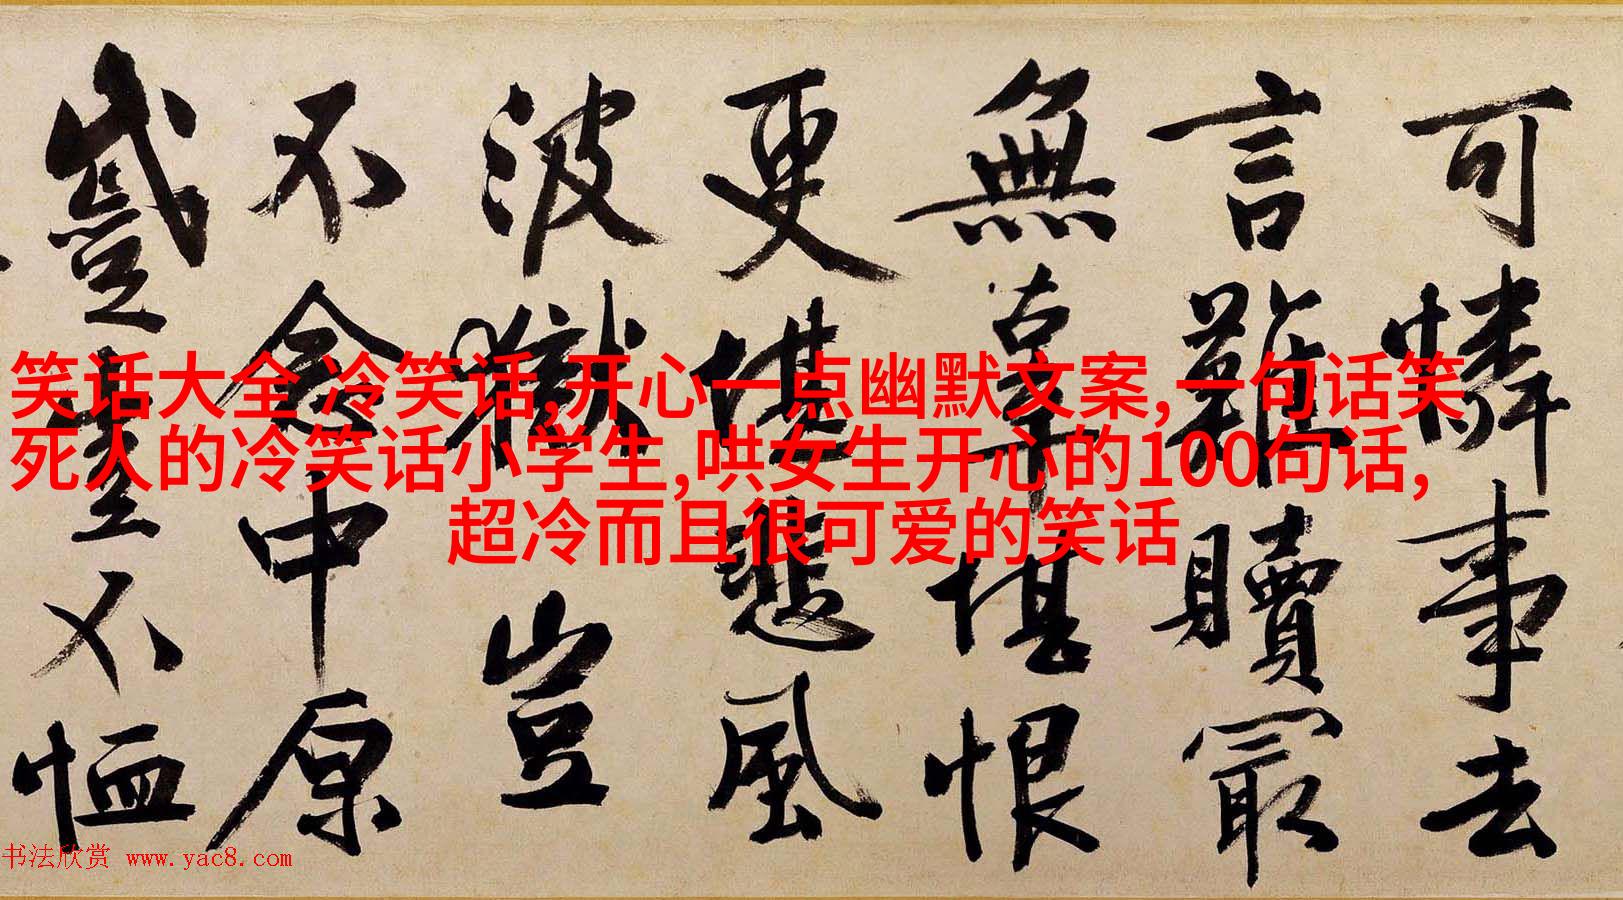 可憐事去
言難贖最
無辜堪恨
更堪悲風
波獄豈
不念中原
蹙豈不恤
笑话大全 冷笑话,开心一点幽默文案,一句话笑
死人的冷笑话小学生,哄女生开心的100句话,
超冷而且很可爱的笑话
书法欣赏 www.yac8.com